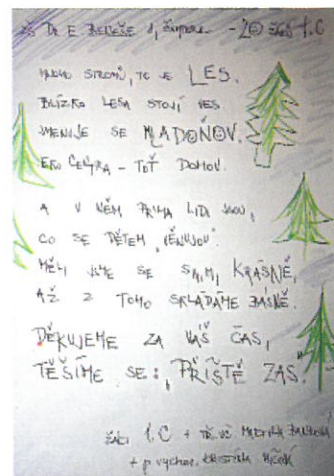 ZŠ DR. E. BENEŠE 1, ŠUMPERK - 20 žáků 1.C
MNOHO STROMŮ, TO JE LES.
BLÍZKO LESA STOJÍ VES
JMENUJE SE MLADOŇOV.
EKO CENTRA - TOŤ DOMOV.
A V NĚM PRIMA LIDI JSOU,
CO SE DĚTEM VĚNUJOU.
MĚLI JSME SE S VÁMI KRÁSNĚ,
AŽ Z TOHO SKLÁDÁME BÁSNĚ.
DĚKUJEME ZA VÁŠ ČAS,
TĚŠÍME SE: „PŘÍŠTĚ ZAS."
ŽÁCI 1.C + TŘ. UČ. MARTINA
+ p. vychov. KRISTÝNA